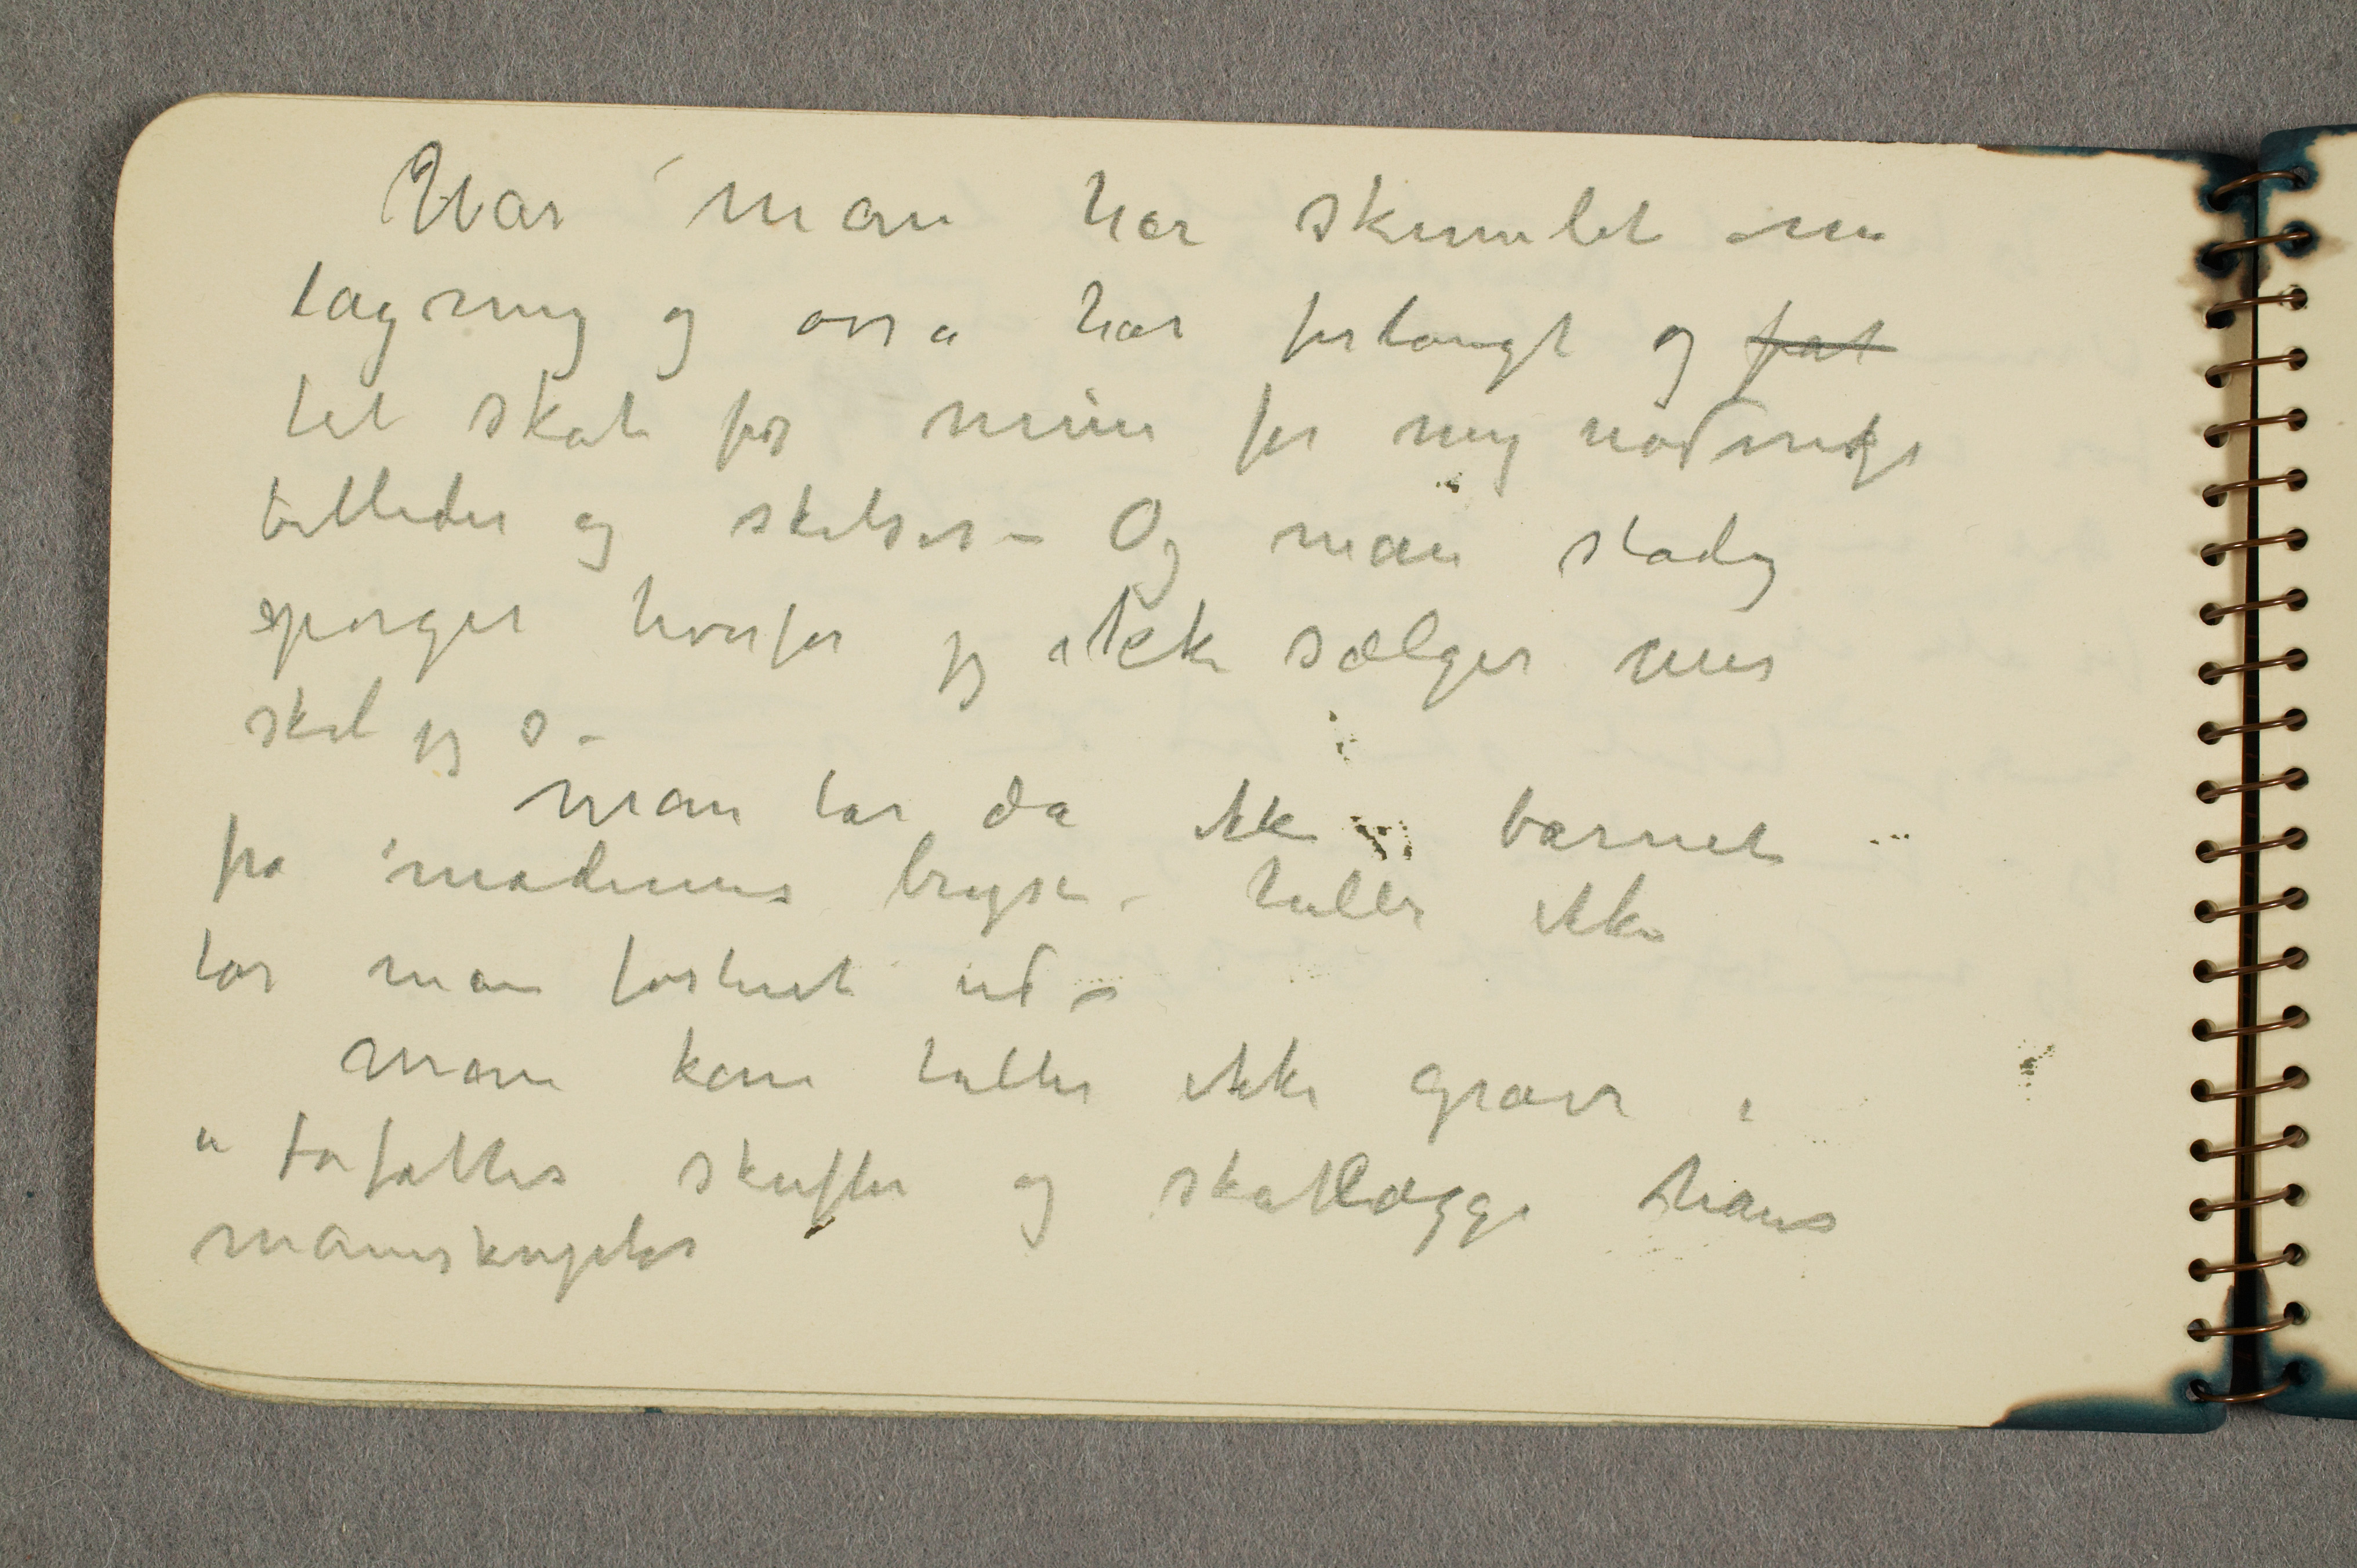 Når man har skumlet om
tagning og osså har forlangt og fat
tet skat for mine for mig nødvendige
billeder og skitser – Og man stadig
spørger hvorfor jeg ikke sælger mer
skal jeg s –
man tar da ikke barnet
fra moderens bryst – heller ikke
tar man fosteret ud –
man kan heller ikke grave i
en forfatters skuffer og skatlægge hans
manuskripter